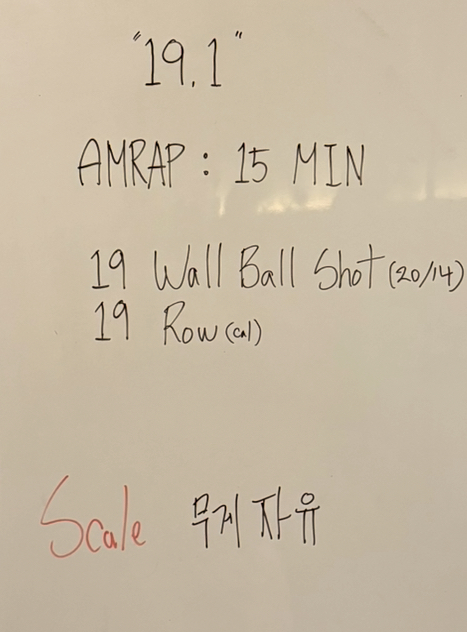 "19.1"
AMRAP : 15 MIN
19 Wall Ball Shot (20/14)
19 Row (cal)
Scale 무게 자유